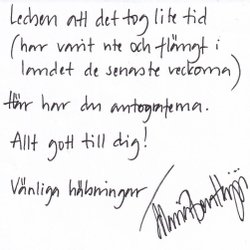 Ledsen att det tog lite tid
(har varit ute och flängt i
landet de senaste veckorna)
Här har du autograferna.
Allt gott till dig!
Vänliga hälsningar